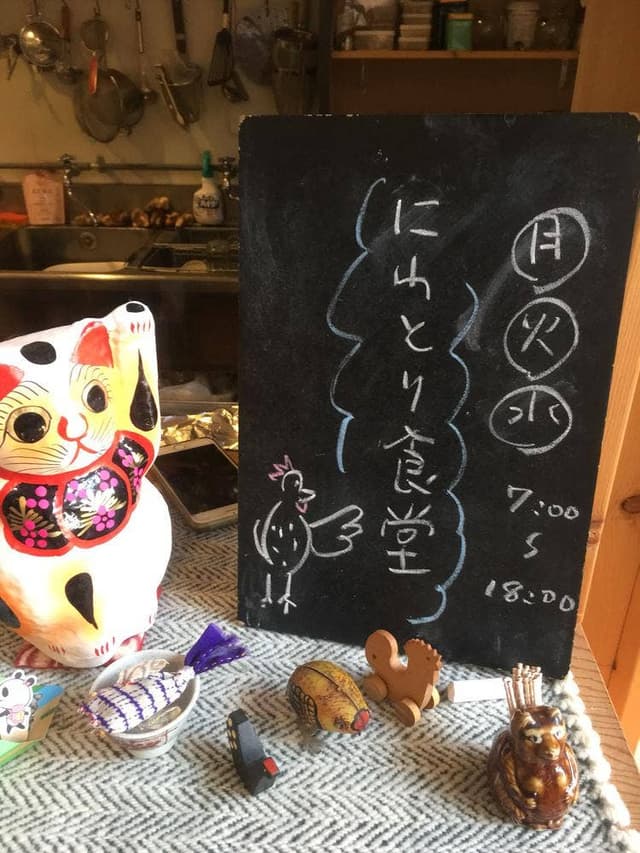 月
火
水
7:00
〜
18:00
にわとり食堂